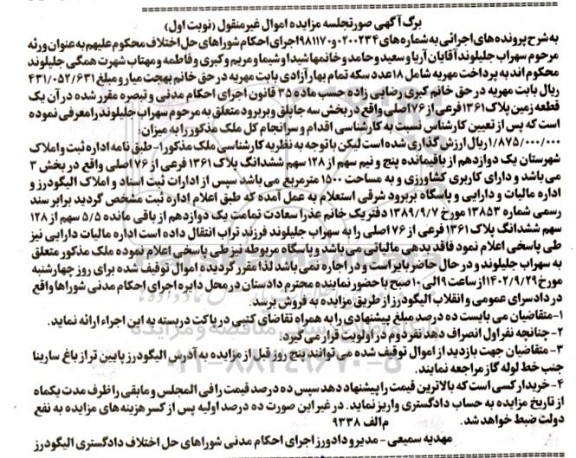 برگ آگهی صورتجلسه مزایده اموال غیرمنقول (نوبت اول)
به شرح پرونده‌های اجرائی به شماره‌های ۲۰۰۲۳۴-و۹۸۱۱۷۰اجرای احکام شوراهای حل اختلاف محکوم علیهم به عنوان ورثه
مرحوم سهراب جلیلوند آقایان آریا و سعید و حامد و خانمها شیدا و شیما و مریم و کبری و فاطمه و مهتاب شهرت همگی جلیلوند
محکوم اند به پرداخت مهریه شامل ۱۸عدد سکه تمام بهار آزادی بابت مهریه در حق خانم بهجت میار و مبلغ ۴۳۱/۰۵۲/۶۳۱
ریال بابت مهریه در حق خانم کبری رضایی زاده حسب ماده ۳۵ قانون اجرای احکام مدنی و تبصره مقرر شده در آن یک
قطعه زمین پلاک ۱۳۶۱ فرعی از ۷۶اصلی واقع در بخش سه جاپلق و بربرود متعلق به مرحوم سهراب جلیلوند را معرفی نموده
است که پس از تعیین کارشناس نسبت به کارشناسی اقدام و سرانجام کل ملک مذکور را به میزان:
۱/۸۷۵/۰۰۰/۰۰۰ریال ارزش گذاری شده است لیکن با توجه به نظریه کارشناسی ملک مذکور۱-طبق نامه اداره ثبت و املاک
شهرستان یک دوازدهم از باقیمانده پنج و نیم سهم از ۱۲۸ سهم ششدانگ پلاک ۱۳۶۱ فرعی از ۷۶اصلی واقع در بخش ۳
می باشد و دارای کاربری کشاورزی و به مساحت ۱۵۰۰ مترمربع می باشد سپس از ادارات ثبت اسناد و املاک الیگودرز و
اداره مالیات و دارایی و پاسگاه بربرود شرقی استعلام به عمل آمده که طبق اعلام اداره ثبت مشخص گردید برابر سند
رسمی شماره ۱۳۸۵۳ مورخ ۱۳۸۹/۹/۷ دفتر یک خانم عذرا سعادت تمامت یک دوازدهم از باقی مانده ۵/۵ سهم از ۱۲۸
سهم ششدانگ پلاک ۱۳۶۱ فرعی از ۷۶ اصلی را به سهراب جلیلوند فرزند تراب انتقال داده است اداره مالیات دارایی نیز
طی پاسخی اعلام نمود فاقد بدهی مالیاتی می باشد و پاسگاه مربوطه نیز طی پاسخی اعلام نموده ملک مذکور متعلق
به سهراب جلیلوند و در حال حاضر بایر است و در اجاره نمی باشد لذا مقرر گردیده اموال توقیف شده برای روز چهارشنبه
مورخ ۱۴۰۲/۹/۲۹از ساعت ۹ الی ۱۰صبح با حضور نماینده محترم دادستان در محل دایره اجرای احکام مدنی شوراها واقع
در دادسرای عمومی و انقلاب الیگودرز از طریق مزایده به فروش برسد.
۱-متقاضیان می بایست ده درصد مبلغ پیشنهادی را به همراه تقاضای کتبی در پاکت دربسته به این اجراء ارائه نماید.
۲-چنانچه نفر اول انصراف دهد نفر دوم در اولویت قرار می گیرد.
۳-متقاضیان جهت بازدید از اموال توقیف شده می توانند پنج روز قبل از مزایده به آدرس الیگودرز پایین تر از باغ سارینا
جنب خط لوله گاز مراجعه نمایند.
۴-خریدار کسی است که بالاترین قیمت را پیشنهاد دهد سپس ده درصد قیمت را فی المجلس و مابقی را ظرف مدت یکماه
از تاریخ مزایده به حساب دادگستری واریز نماید. در غیر این صورت ده درصد اولیه پس از کسر هزینه های مزایده به نفع
دولت ضبط خواهد شد. م الف ۹۳۳۸
مهدیه سمیعی - مدیر و دادورز اجرای احکام مدنی شوراهای حل اختلاف دادگستری الیگودرز
۰۲۱-۸۸۳۴۹۶۷۰-۵